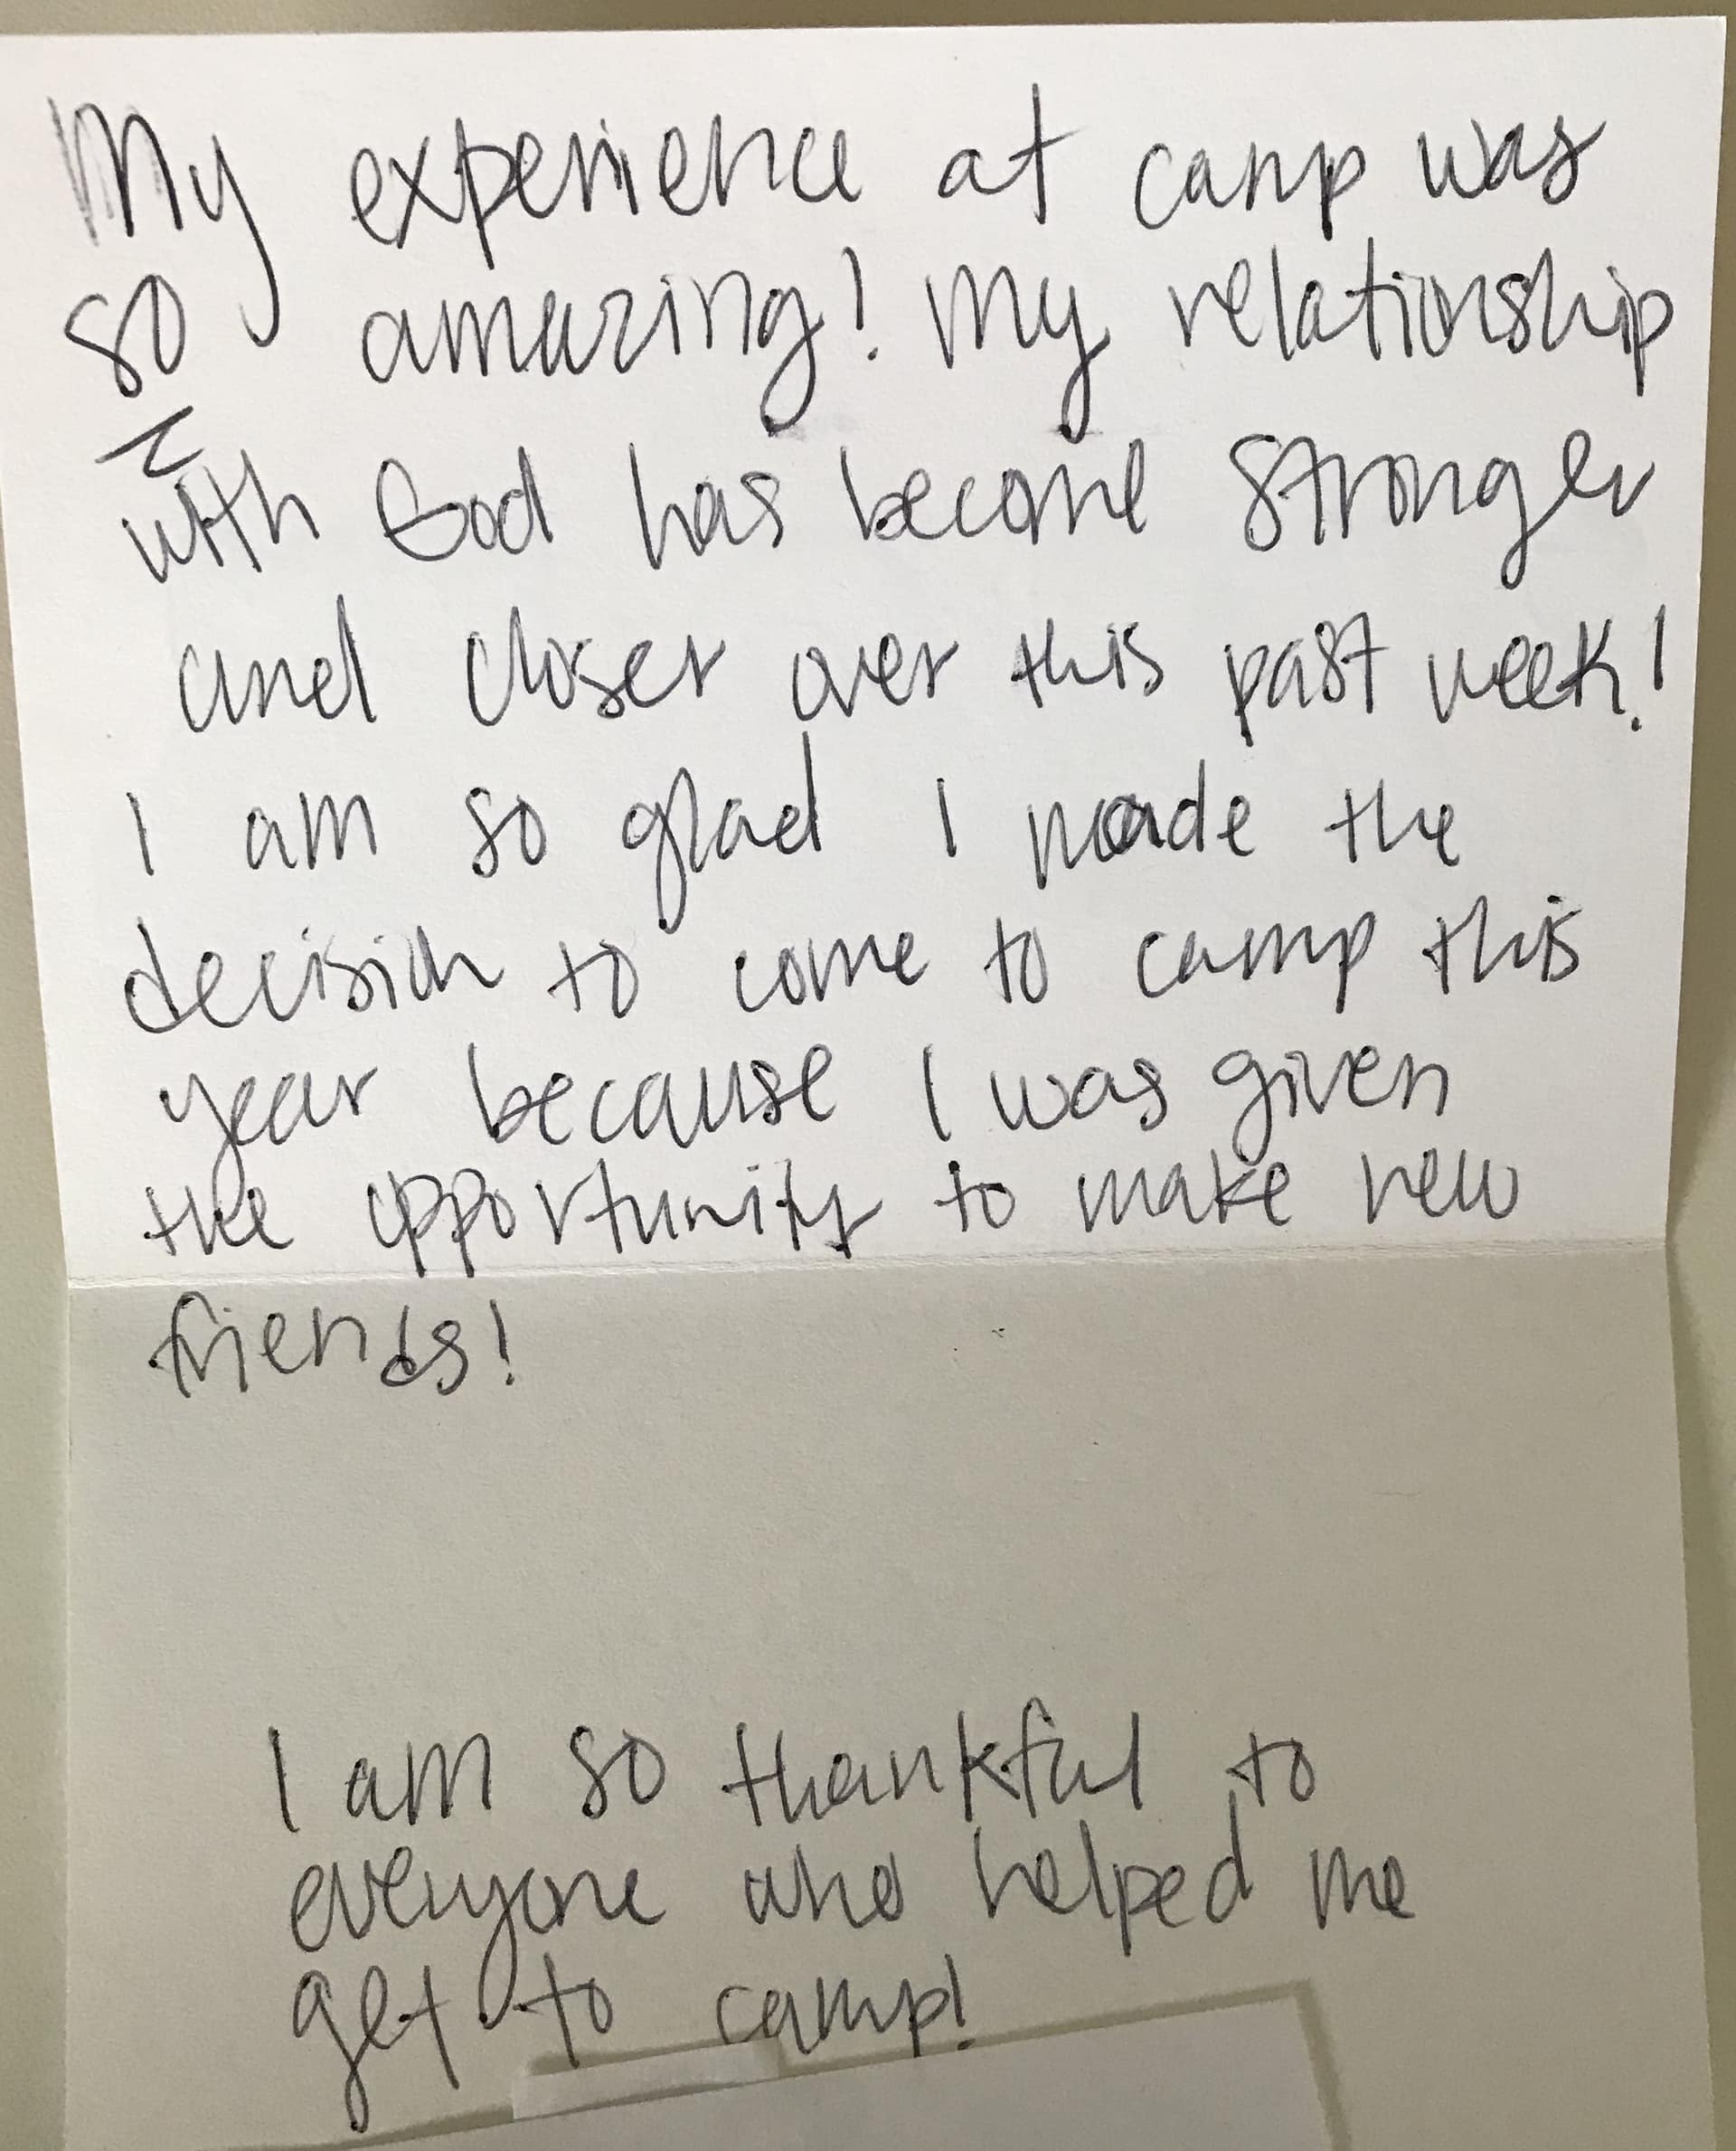 My experience at camp was
so amazing! My relationship
with God has become stronger
and closer over this past week!
I am so glad I made the
decision to come to camp this
year because I was given
the opportunity to make new
friends!
I am so thankful to
everyone who helped me
get to camp!